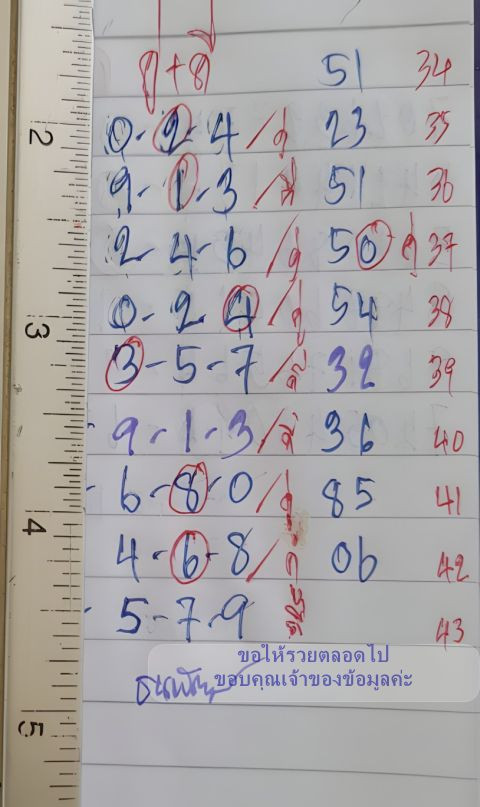 คู่+คี่ 51 34
0-2-4/คู่ 23 35
9-1-3/คี่ 51 36
2-4-6/คู่ 50 คู่ 37
0-2-4/คู่ 54 38
3-5-7/คี่ 32 39
9-1-3/คี่ 36 40
6-8-0/คู่ 85 41
4-6-8/คู่ 06 42
5-7-9 คี่ 43
ขอให้รวยตลอดไป
ขอบคุณเจ้าของข้อมูลค่ะ
2
3
4
5